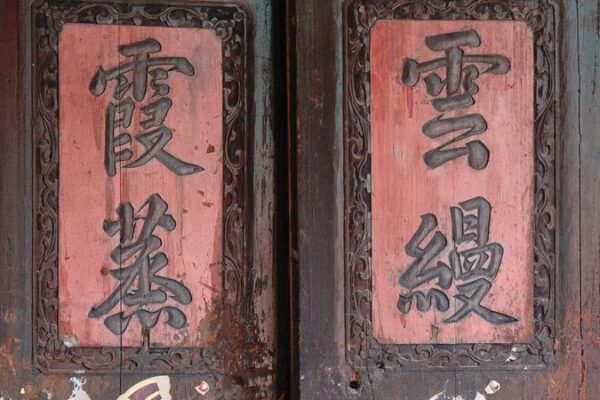 雲縵
霞蒸